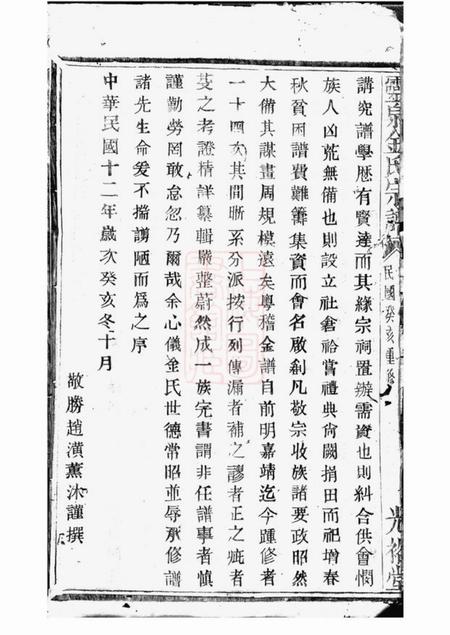 講究譜學歷有賢達而其緣宗祠置辦需資也則糾合供會憫
族人凶荒無備也則設立社倉祫嘗禮典尚闕捐田而祀增春
秋貧困譜費難籌集資而會名啟創凡敬宗收族諸要政昭然
大備其謀畫周規模遠矣粵稽金譜自前明嘉靖迄今踵修者
一十四次其間晰系分派按行列傳漏者補之謬者正之疵者
芟之考證精詳纂輯嚴整蔚然成一族完書謂非任譜事者慎
謹勤勞罔敢怠忽乃爾哉余心儀金氏世德常昭並辱承修譜
諸先生命爰不揣謭陋而爲之序
中華民國十二年歲次癸亥冬十月
敬勝趙潢薰沐謹撰
金氏宗譜
民國癸亥重修